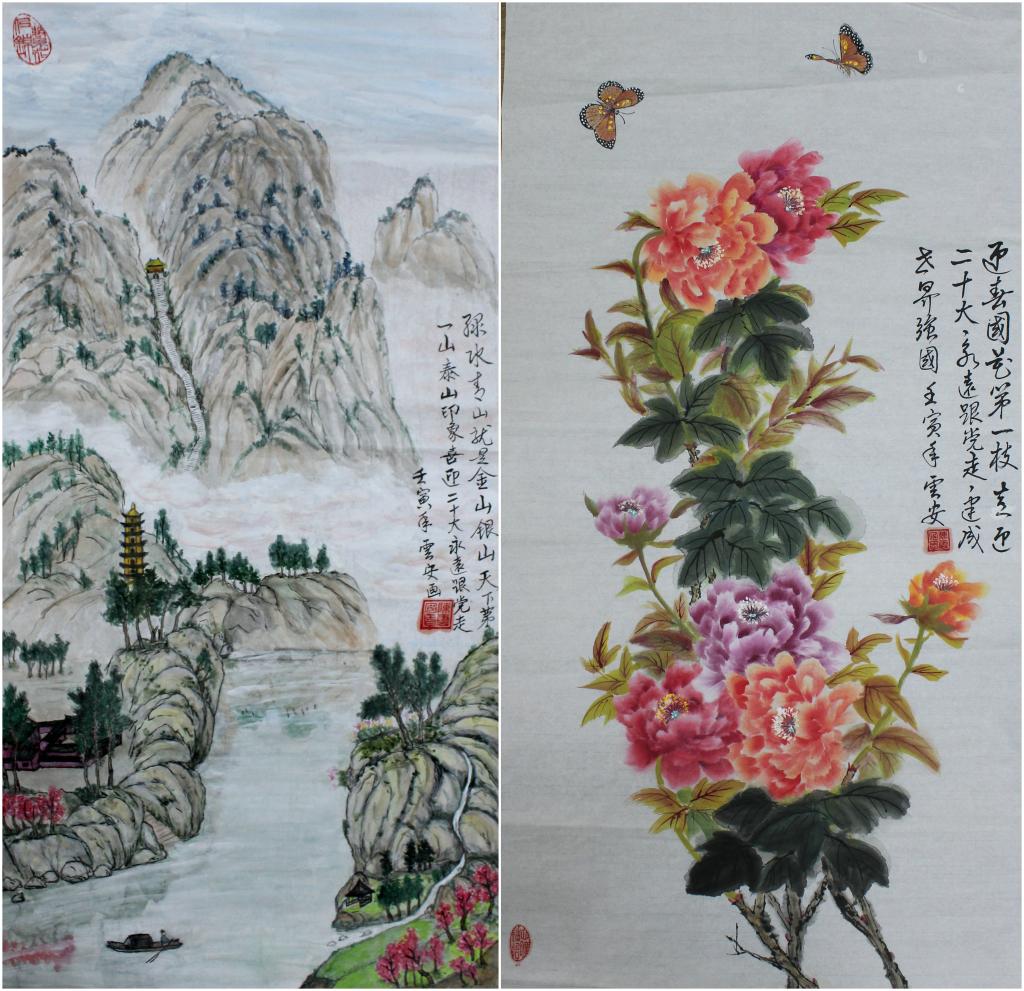 绿水青山就是金山银山天下第
一山泰山印象喜迎二十大永远跟党走
壬寅年雲安画
迎春國花第一枝喜迎
二十大、永远跟党走、建成
世界强國 壬寅年 雲安